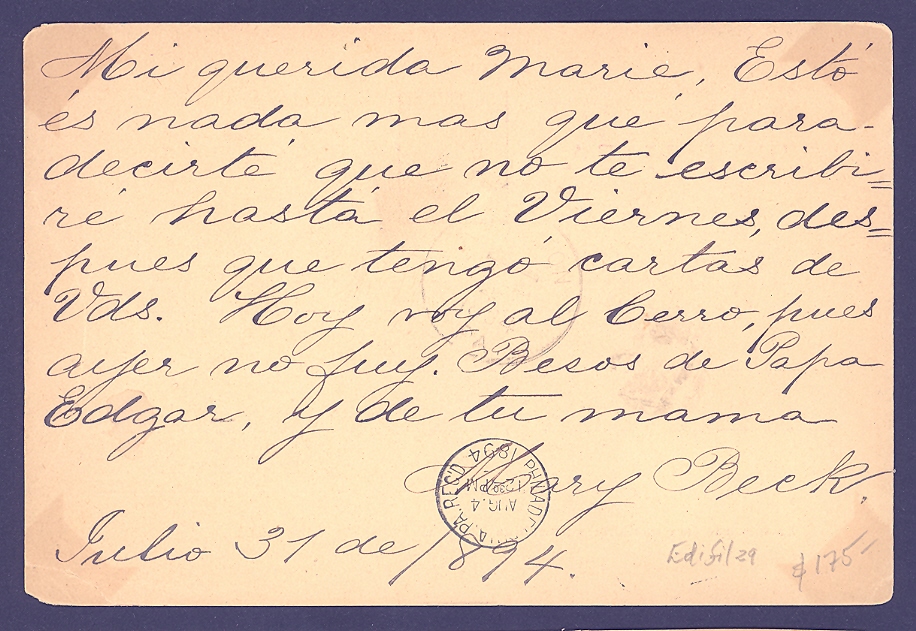 Mi querida Marie, Estó
és nada mas qué para-
decirté que no te escribi=
ré hastá el Viernes, des=
pues que tengó cartas de
Vds. Hoy voy al Cerro, pues
ayer no fuy. Besos de Papa
Edgar, y de tu mama
Mary Beck.
PHILADELPHIA, PA. REC'D
AUG. 4
12 30 PM
1894
Julio 31 de /894.
Edifil 29
$175